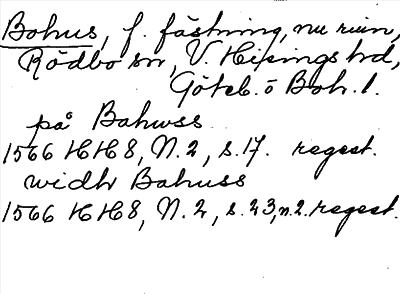 Bohus, f. fästning, nu ruin,
Rödbo sn, V. Hisings hd,
Göteb. o Boh. l.
på Bahwss
1566 HH8, N. 2, s. 17. regest.
widh Bahuss
1566 HH8, N. 2, s. 23, n. 2. regest.